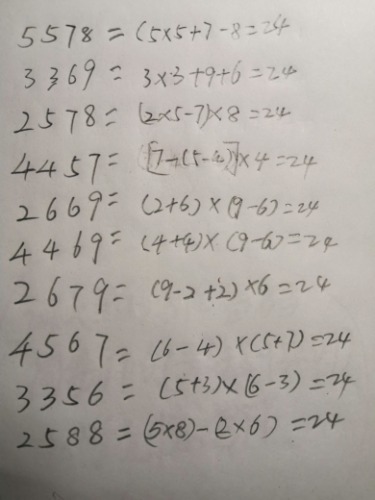 5578 = (5×5+7-8=24
3369 = 3×3+9+6=24
2578 = (2×5-7)×8=24
4457 = [7-(5-4)]×4=24
2669 = (2+6)×(9-6)=24
4469 = (4+4)×(9-6)=24
2679 = (9-2+2)×6=24
4567 = (6-4)×(5+7)=24
3356 = (5+3)×(6-3)=24
2588 = (5×8)-(2×6)=24